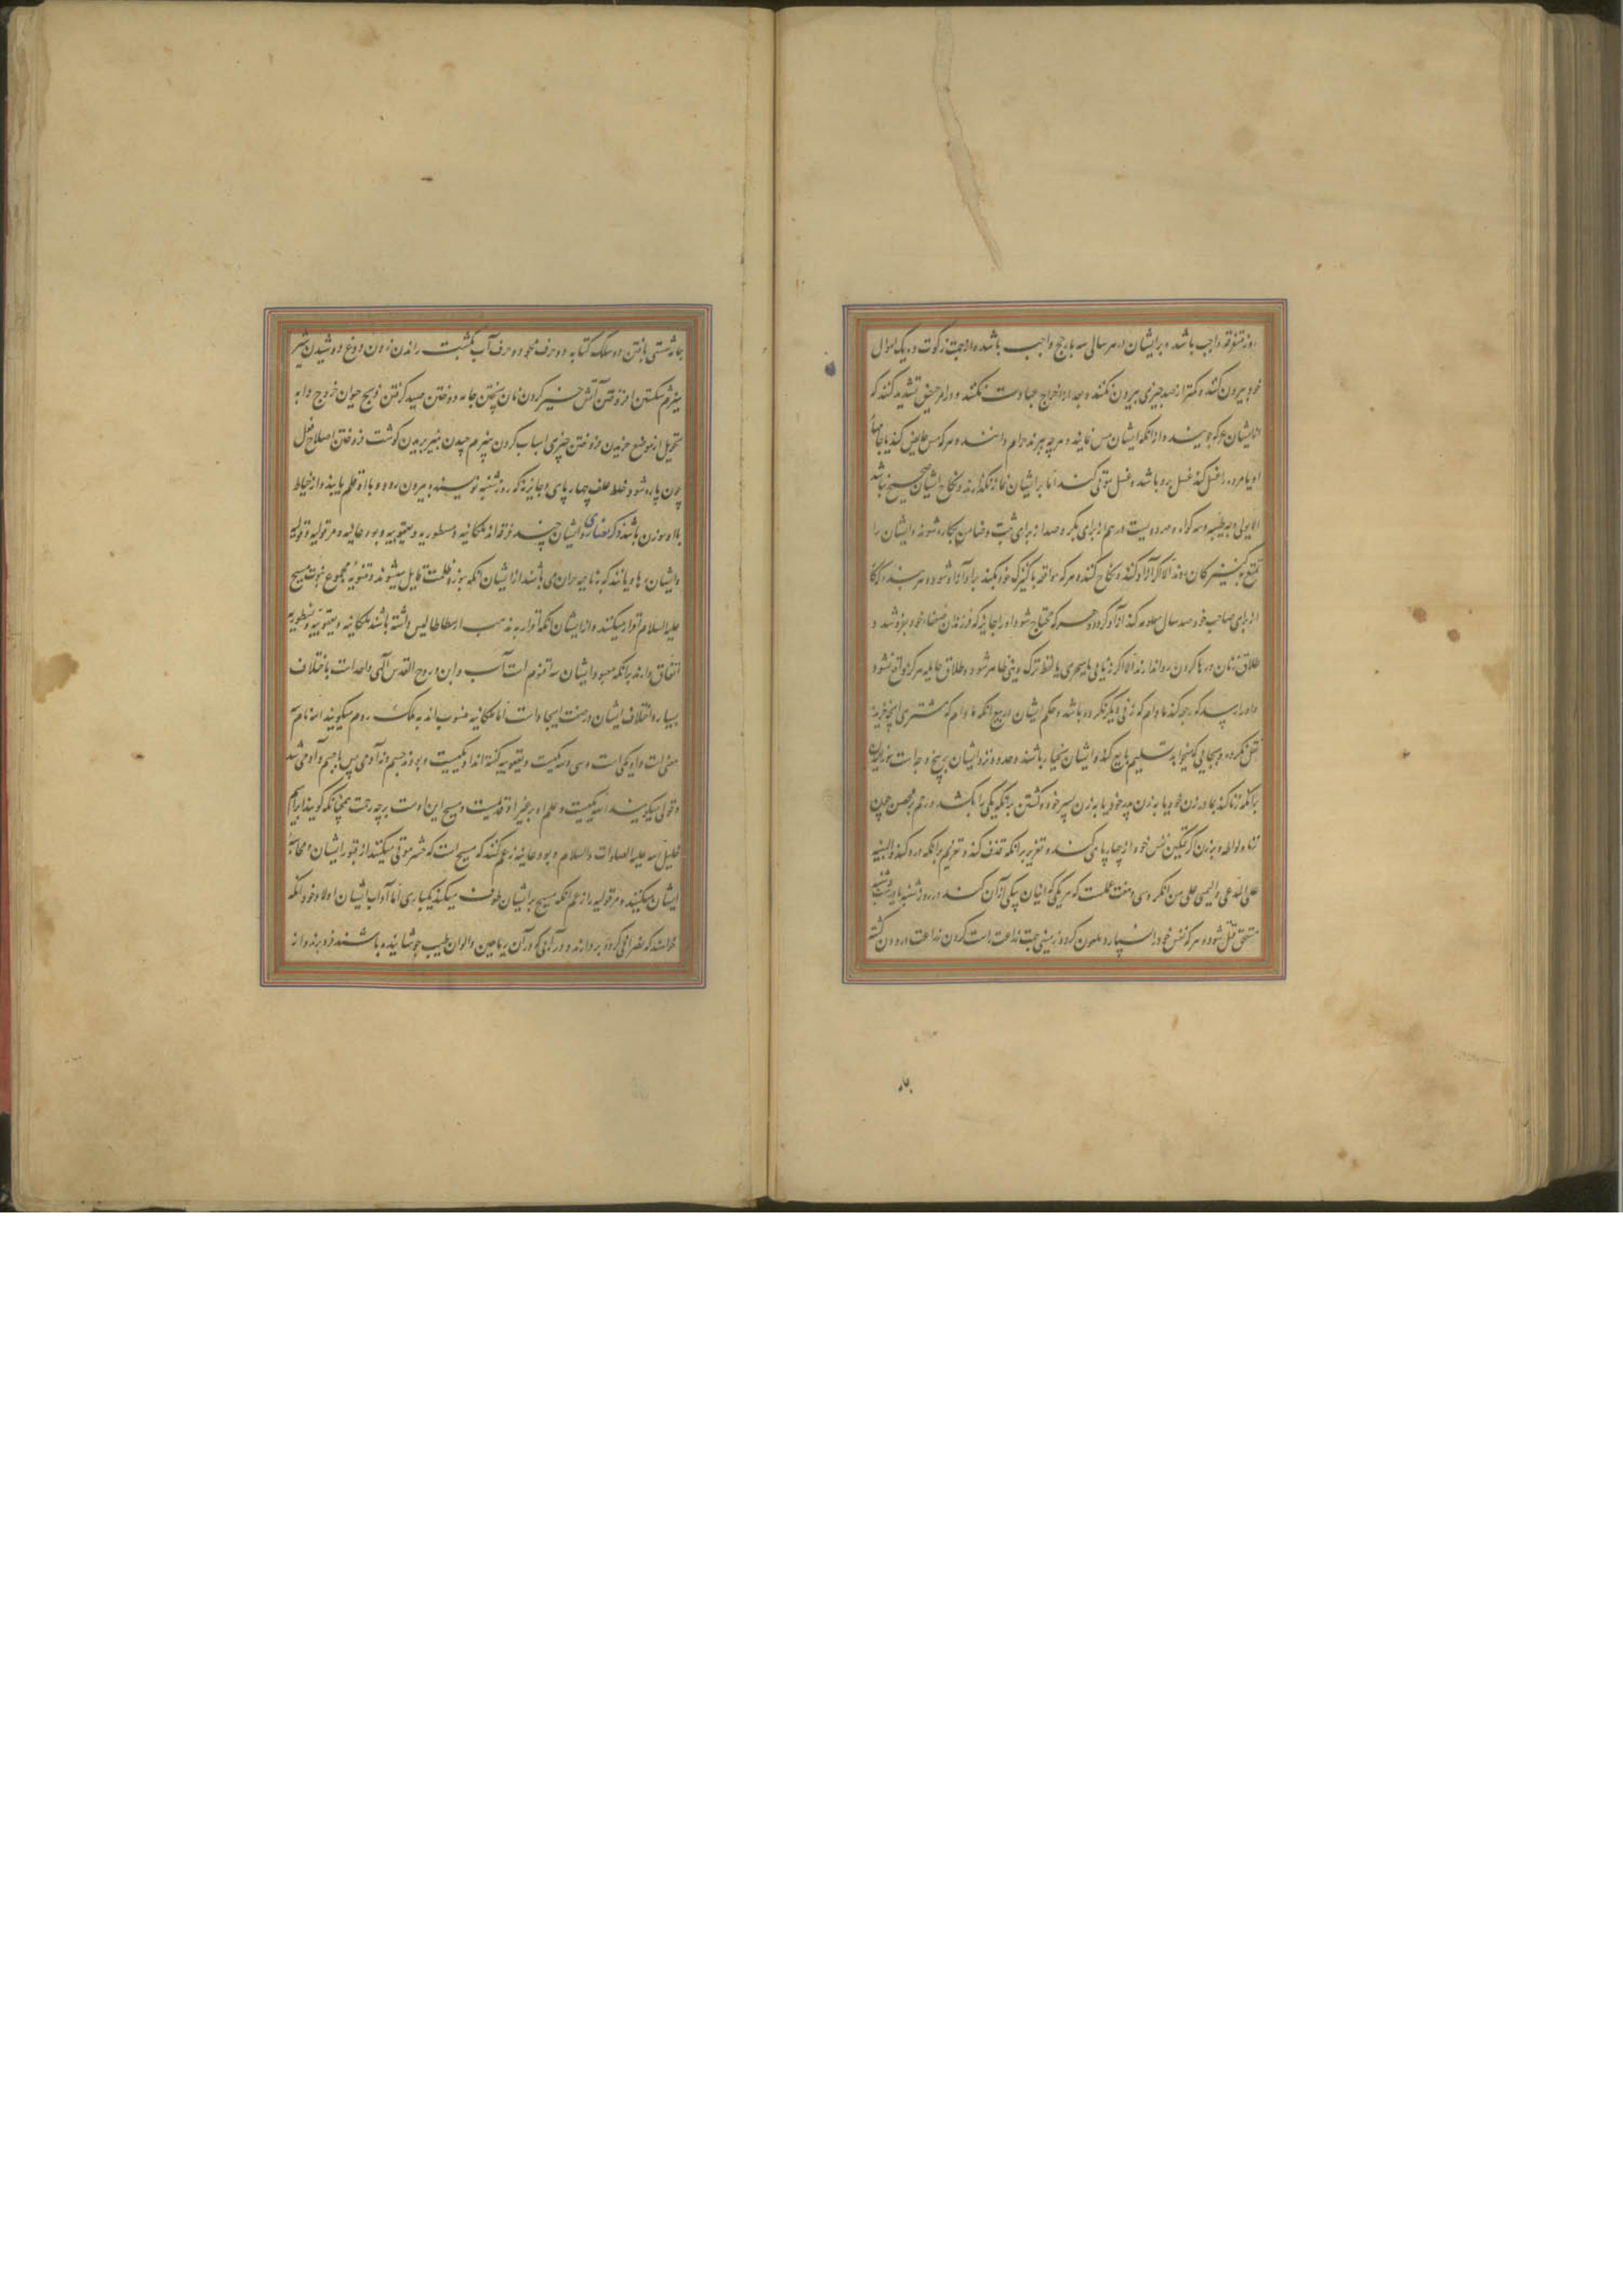 روز متفرقه واجب باشد و بر ایشان در هر سالی سه بار حج واجب باشد و از جهت زکوت ده یک اموال
خود بیرون کنند و کمتر از صد چیزی بیرون نکنند و بعد از اخراج عبادت نکنند و در امر حیض تشدید کنند که
و از آنکه ایشان مس نمایند و هر چه پزند حرام دانند و هر که مس حایض کند یا جامهاء
او یا مرده را غسل کند غسل برو باشد و غسل موتی کنند اما بر ایشان نماز نگذارند و نکاح ایشان صحیح نباشد
الا بولی و سه گواه و مهر دویست درهم از برای بکر و صد از برای ثیب و ایشان را
تمتع به کنیزکان نبود الا اگر آزاد کنند و نکاح کنند و هر که مواقعه با کنیزک خود بکند برو آزاد شود و هر بنده که
از برای صاحب خود صد سال کند آزاد گردد و هر که محتاج شود او را جایز که فرزندان ضعفاء خود بفروشد و
طلاق زنان و رها کردن روا ندارند الا اگر زنایی یا سحری یا لفظ ترک دینی ظاهر شود و طلاق هرگز واقع نشود
و او را رسد که رجعه کند مادام که زنی دیگر نکرده باشد و حکم ایشان در بیع آنکه مادام که مشتری آنچه خریده
نقل نکرده و بجایی که میخواهد تسلیم بایع کند و ایشان بخیار باشند و حدود نزد ایشان بر پنج وجه است
بر آنکه زنا کند بمادر زن خود یا به زن پدر خود یا به زن پسر خود و کشتن بر آنکه یکی را بکشد و رجم بر محصن چون
زنا و لواطه و بر زن که تمکین نفس خود از چهارپای کند و تعزیر بر آنکه قذف کند و تغریم بر آنکه دزدی کند و البینه
علی المدعی و الیمین علی من انکر و سی و هفت عملست که هر یکی که اتیان بیکی از آن کند در روز شنبه یا در شب شنبه
مستحق قتل شود و هر که نفس خود را بسپارد ملعون گردد زمینی جهت زراعت راست کردن زراعت درودن کشته
جامه شستی بافتن دو سلک کتابه دو حرف محو دو حرف آب بکشت راندن زدن دوغ دوشیدن شیر
هیزم شکستن افروختن آتش خمیر کردن نان پختن جامه دوختن صید گرفتن ذبح حیوان خروج دابه
تحویل از موضع خریدن فروختن چیزی اسباب کردن پنبه هیزم چیدن پنیر بریدن گوشت فروختن اصلاح نعل
چون پاره شود خلط علف چهارپای و جایز نه که روز شنبه نویسنده بیرون رود و با او قلم یابند و از خیاط
با او سوزن باشد ذکر نصاری و ایشان چند فرقه‌اند ملکانیه و نسطوریه و یعقوبیه و بودعانیه و مرقولیه
و ایشان رهاویانند که بناحیه حران می‌باشند از ایشان آنکه بنور و ظلمت قایل میشوند و ثنویه مجموع بنبوت مسیح
علیه السلام اقرار میکنند و از ایشان آنکه اقرار به مذهب ارسطاطالیس داشته باشند ملکانیه و یعقوبیه و نسطوریه
اتفاق دارند بر آنکه معبود ایشان سه اقنوم است آب و ابن و روح القدس الهی واحد است باختلاف
بسیار و اختلاف ایشان در صفت ایجاد است اما ملکانیه منسوب‌اند به ملک روم میگویند الله نام سه
معنی است و او یکی است و سی و سه یکیست و یعقوبیه گفته‌اند او یکیست و بود نه جسم و نه آدمی پس با جسم و آدمی شد
و قولی میگویند الله یکیست و علم او بر غیر او قدیمست و مسیح ابن اوست بر جهت رحمت همچنانکه گویند ابراهیم
خلیل الله علیه الصلوات و السلام و بودعانیه زعم کنند که مسیح است که حشر موتی میکند از قبور ایشان و محاسبه
ایشان میکند و مرقولیه را زعم آنکه مسیح بر ایشان طوف میکند یکباری اما آداب ایشان اولاد خود را آنکه
خواهند که نصرانی گردد بردارند و در آبی که در آن ریاحین و الوان طیب جوشانیده باشند فرو برند و از